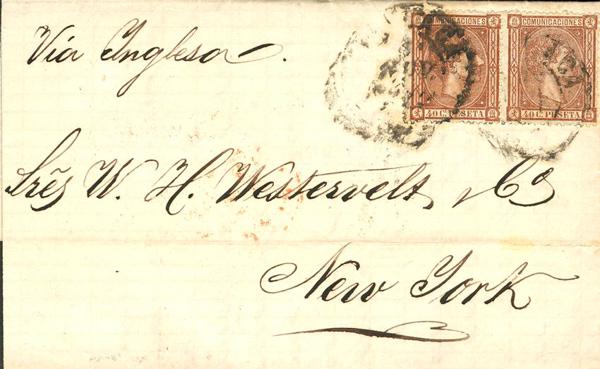 COMUNICACIONES COMUNICACIONES
40 C. PESETA 40 C. PESETA
Via Inglesa.
Srēs W. H. Westervelt, y Cº
New York